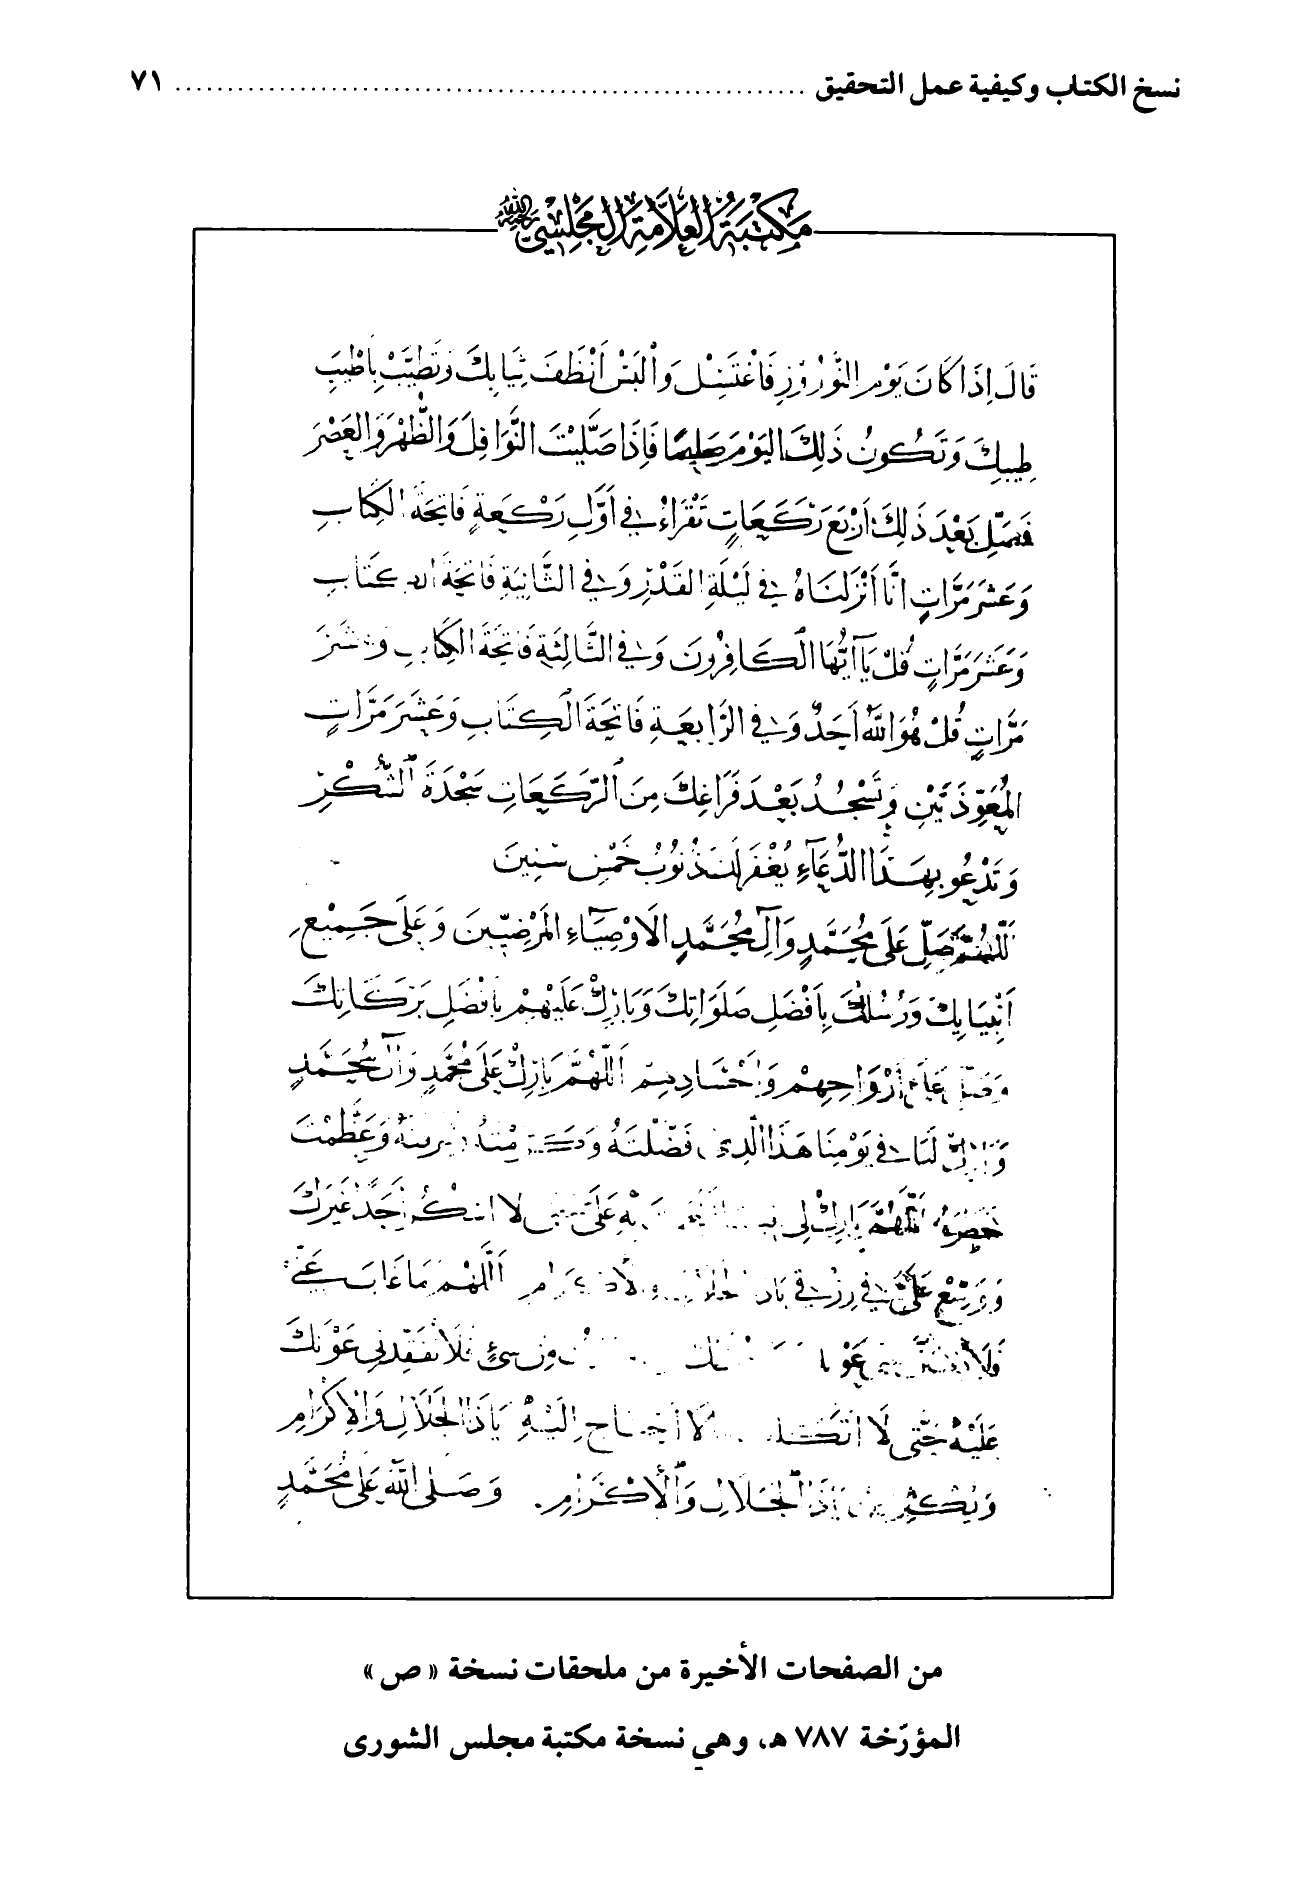 نسخ الكتاب وكيفية عمل التحقيق ........................................................... ٧١
مَكْتَبَةُ العَلَّامَةِ المَجْلِسِي
قَالَ إِذَا كَانَ يَوْمُ النَّوْرُوزِ فَاغْتَسِلْ وَالْبَسْ أَنْظَفَ ثِيَابِكَ وَتَطَيَّبْ بِأَطْيَبِ
طِيبِكَ وَتَكُونُ ذَلِكَ اليَوْمَ صَائِمًا فَإِذَا صَلَّيْتَ النَّوَافِلَ وَالظُّهْرَ وَالعَصْرَ
فَصَلِّ بَعْدَ ذَلِكَ أَرْبَعَ رَكَعَاتٍ تَقْرَاءُ فِي أَوَّلِ رَكْعَةٍ فَاتِحَةَ الكِتَابِ
وَعَشْرَ مَرَّاتٍ انَّا أَنْزَلْنَاهُ فِي لَيْلَةِ القَدْرِ وَفِي الثَّانِيَةِ فَاتِحَةَ الكِتَابِ
وَعَشْرَ مَرَّاتٍ قُلْ يَا أَيُّهَا الكَافِرُونَ وَفِي الثَّالِثَةِ فَاتِحَةَ الكِتَابِ وَعَشْرَ
مَرَّاتٍ قُلْ هُوَ اللَّهُ أَحَدٌ وَفِي الرَّابِعَةِ فَاتِحَةَ الكِتَابِ وَعَشْرَ مَرَّاتٍ
المُعَوِّذَتَيْنِ وَتَسْجُدُ بَعْدَ فَرَاغِكَ مِنَ الرَّكَعَاتِ سَجْدَةَ الشُّكْرِ
وَتَدْعُو بِهَذَا الدُّعَاءِ يُغْفَرْ لَكَ ذُنُوبُ خَمْسِينَ سَنَةً
اَللَّهُمَّ صَلِّ عَلَى مُحَمَّدٍ وَآلِ مُحَمَّدٍ الأَوْصِيَاءِ المَرْضِيِّينَ وَعَلَى جَمِيعِ
أَنْبِيَائِكَ وَرُسُلِكَ بِأَفْضَلِ صَلَوَاتِكَ وَبَارِكْ عَلَيْهِمْ بِأَفْضَلِ بَرَكَاتِكَ
وَصَلِّ عَلَى أَرْوَاحِهِمْ وَأَجْسَادِهِمْ اَللَّهُمَّ بَارِكْ عَلَى مُحَمَّدٍ وَآلِ مُحَمَّدٍ
وَبَارِكْ لَنَا فِي يَوْمِنَا هَذَا الَّذِي فَضَّلْتَهُ وَعَظَّمْتَ
اَللَّهُمَّ بَارِكْ لِي عَلَيَّ لا اشْكُرُ أَحَدًا غَيْرَكَ
وَوَسِّعْ عَلَيَّ فِي رِزْقِي يَاذَا الجَلَالِ وَالإِكْرَامِ اَللَّهُمَّ مَا غَابَ عَنِّي
شَيْءٍ فَلَا تَفْقِدْنِي عَوْنَكَ
عَلَيْهِ حَتَّى لَا أَتَكَلَّفَ مَا لَا أَحْتَاجُ إِلَيْهِ يَاذَا الجَلَالِ وَالإِكْرَامِ
وَتُكْثِرُ مِنْ يَاذَا الجَلَالِ وَالإِكْرَامِ. وَصَلَّى اللَّهُ عَلَى مُحَمَّدٍ
من الصفحات الأخيرة من ملحقات نسخة « ص »
المؤرّخة ٧٨٧ هـ، وهي نسخة مكتبة مجلس الشورى